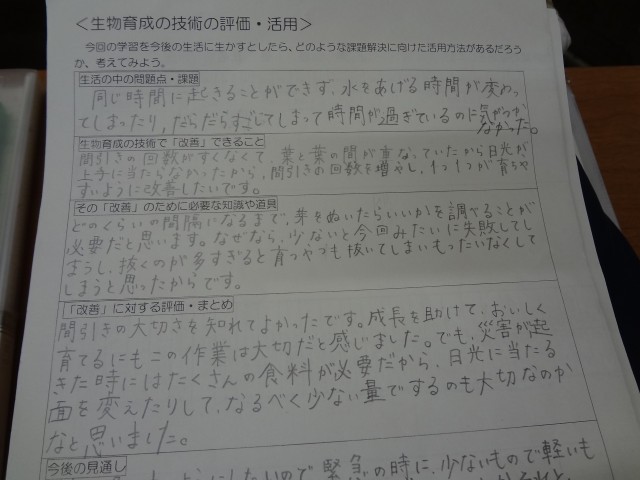 ＜生物育成の技術の評価・活用＞
今回の学習を今後の生活に生かすとしたら、どのような課題解決に向けた活用方法があるだろう
か、考えてみよう。
生活の中の問題点・課題
同じ時間に起きることができず、水をあげる時間が変わっ
てしまったり、だらだらすごしてしまって時間が過ぎているのに気がつか
なかった。
生物育成の技術で「改善」できること
間引きの回数がすくなくて、葉と葉の間が重なっていたから日光が
上手に当たらなかったから、間引きの回数を増やし、1つ1つが育ちや
すいように改善したいです。
その「改善」のために必要な知識や道具
どのくらいの間隔になるまで、芽をぬいたらいいかを調べることが
必要だと思います。なぜなら、少ないと今回みたいに失敗してし
まうし、抜くのが多すぎると育つやつも抜いてしまいもったいなくして
しまうと思ったからです。
「改善」に対する評価・まとめ
間引きの大切さを知れてよかったです。成長を助けて、おいしく
育てるにもこの作業は大切だと感じました。でも、災害が起
きた時にはたくさんの食料が必要だから、日光に当たる
面を変えたりして、なるべく少ない量でするのも大切なのか
なと思いました。
今後の見通し
にしたいので緊急の時に、少ないもので軽いも